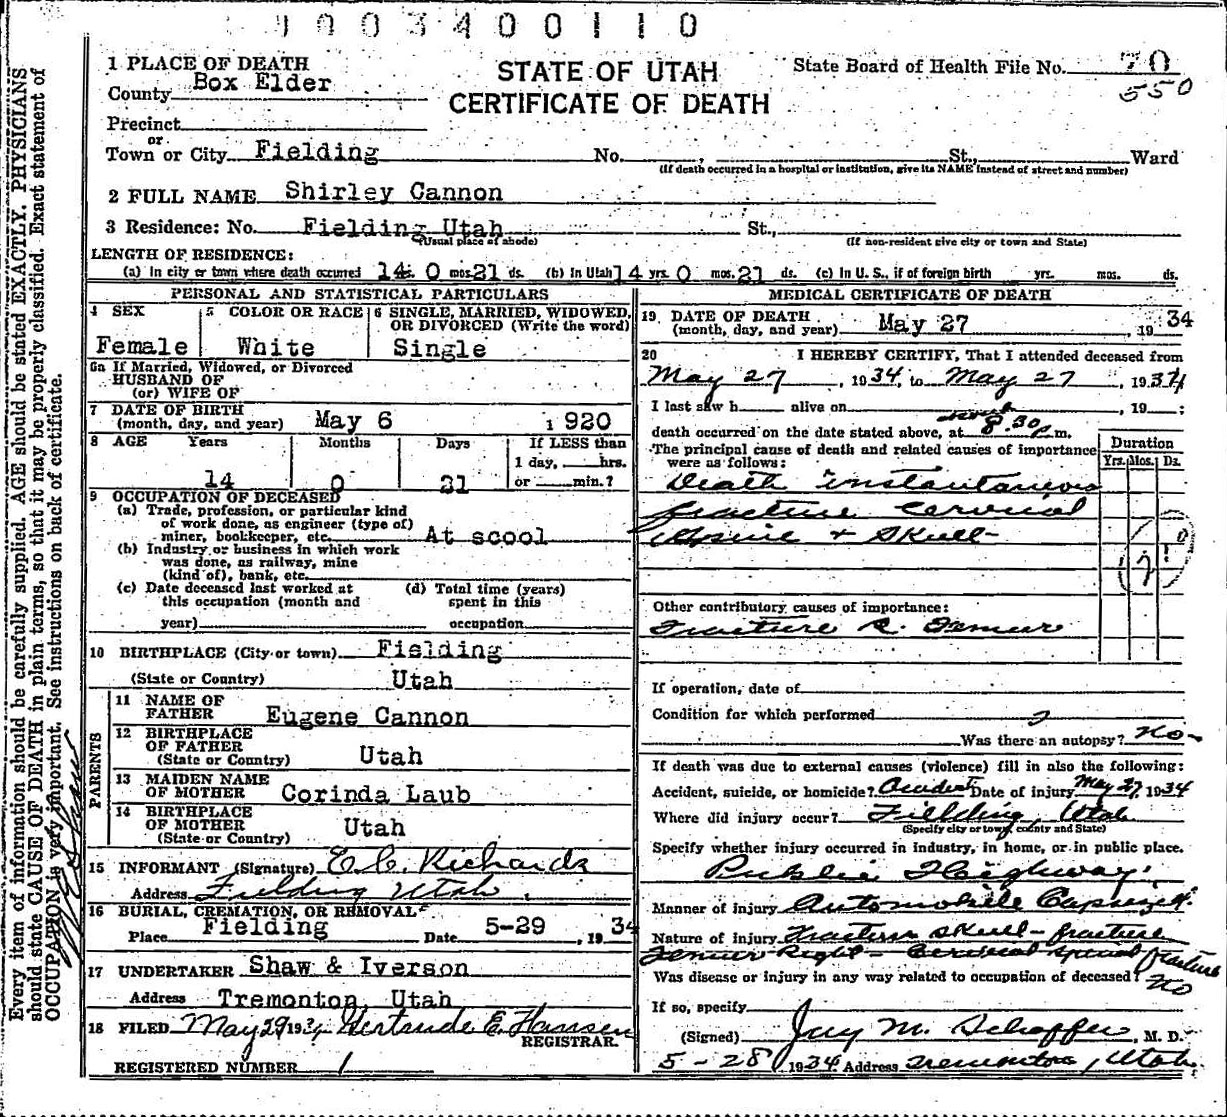 1003400110
1 PLACE OF DEATH
STATE OF UTAH
State Board of Health File No. 70
County Box Elder
CERTIFICATE OF DEATH
550
Precinct
or
Town or City Fielding No. , St., Ward
(If death occurred in a hospital or institution, give its NAME instead of street and number)
2 FULL NAME Shirley Cannon
3 Residence: No. Fielding Utah St.,
(Usual place of abode) (If non-resident give city or town and State)
LENGTH OF RESIDENCE:
(a) In city or town where death occurred 14 0 mos. 21 ds. (b) In Utah 14 yrs. 0 mos. 21 ds. (c) In U. S., if of foreign birth yrs. mos. ds.
PERSONAL AND STATISTICAL PARTICULARS
4 SEX 5 COLOR OR RACE 6 SINGLE, MARRIED, WIDOWED,
OR DIVORCED (Write the word)
Female White Single
6a If Married, Widowed, or Divorced
HUSBAND OF
(or) WIFE OF
7 DATE OF BIRTH
(month, day, and year) May 6 1920
8 AGE Years Months Days If LESS than
1 day, hrs.
14 0 21 or min.?
9 OCCUPATION OF DECEASED
(a) Trade, profession, or particular kind
of work done, as engineer (type of)
miner, bookkeeper, etc. At scool
(b) Industry or business in which work
was done, as railway, mine
(kind of), bank, etc.
(c) Date deceased last worked at (d) Total time (years)
this occupation (month and spent in this
year) occupation
10 BIRTHPLACE (City or town) Fielding
(State or Country) Utah
PARENTS
11 NAME OF
FATHER Eugene Cannon
12 BIRTHPLACE
OF FATHER
(State or Country) Utah
13 MAIDEN NAME
OF MOTHER Corinda Laub
14 BIRTHPLACE
OF MOTHER Utah
(State or Country)
15 INFORMANT (Signature) E. C. Richards
Address Fielding Utah
16 BURIAL, CREMATION, OR REMOVAL
Place Fielding Date 5-29, 1934
17 UNDERTAKER Shaw & Iverson
Address Tremonton, Utah
18 FILED May 29 1934 Gertrude E. Hansen
REGISTRAR.
REGISTERED NUMBER 1
MEDICAL CERTIFICATE OF DEATH
19 DATE OF DEATH
(month, day, and year) May 27, 1934
20 I HEREBY CERTIFY, That I attended deceased from
May 27, 1934, to May 27, 1934
I last saw h alive on , 19 ;
death occurred on the date stated above, at about 8:30 p.m.
The principal cause of death and related causes of importance
were as follows:
Duration
Yrs. Mos. Ds.
Death instantaneous
fracture cervical
spine & skull
Other contributory causes of importance:
Fracture R. Femur
If operation, date of
Condition for which performed
Was there an autopsy? no-
If death was due to external causes (violence) fill in also the following:
Accident, suicide, or homicide? Accident Date of injury May 27, 1934
Where did injury occur? Fielding, Utah
(Specify city or town, county and State)
Specify whether injury occurred in industry, in home, or in public place.
Public Highway.
Manner of injury Automobile Capsized.
Nature of injury Fracture skull - fracture
Femur Right - Cervical spinal fracture
Was disease or injury in any way related to occupation of deceased? no
If so, specify
(Signed) Jay M. Schaffer, M. D.
5-28 1934 Address Tremonton, Utah
Every item of information should be carefully supplied. AGE should be stated EXACTLY. PHYSICIANS
should state CAUSE OF DEATH in plain terms, so that it may be properly classified. Exact statement of
OCCUPATION is very important. See instructions on back of certificate.